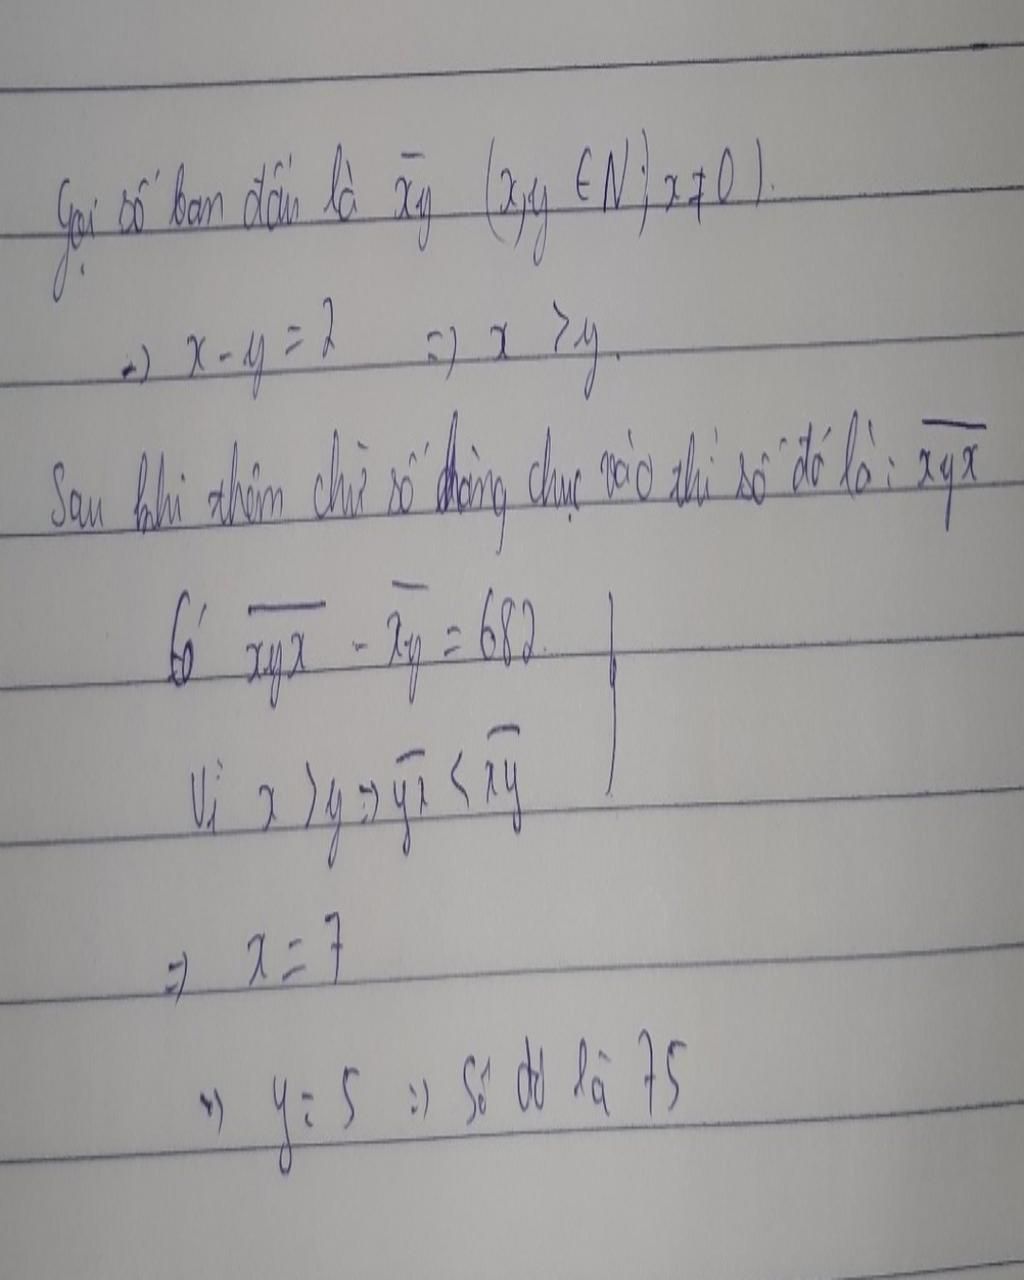 Gọi số ban đầu là x̅y̅ (x,y ∈ N; x≠0).
=> x - y = 2 => x > y.
Sau khi thêm chữ số hàng chục vào thì số đó là: x̅y̅x̅
Có x̅y̅x̅ - x̅y̅ = 682.
Vì x > y => y̅x̅ < x̅y̅
=> x = 7
=> y = 5 => Số đó là 75